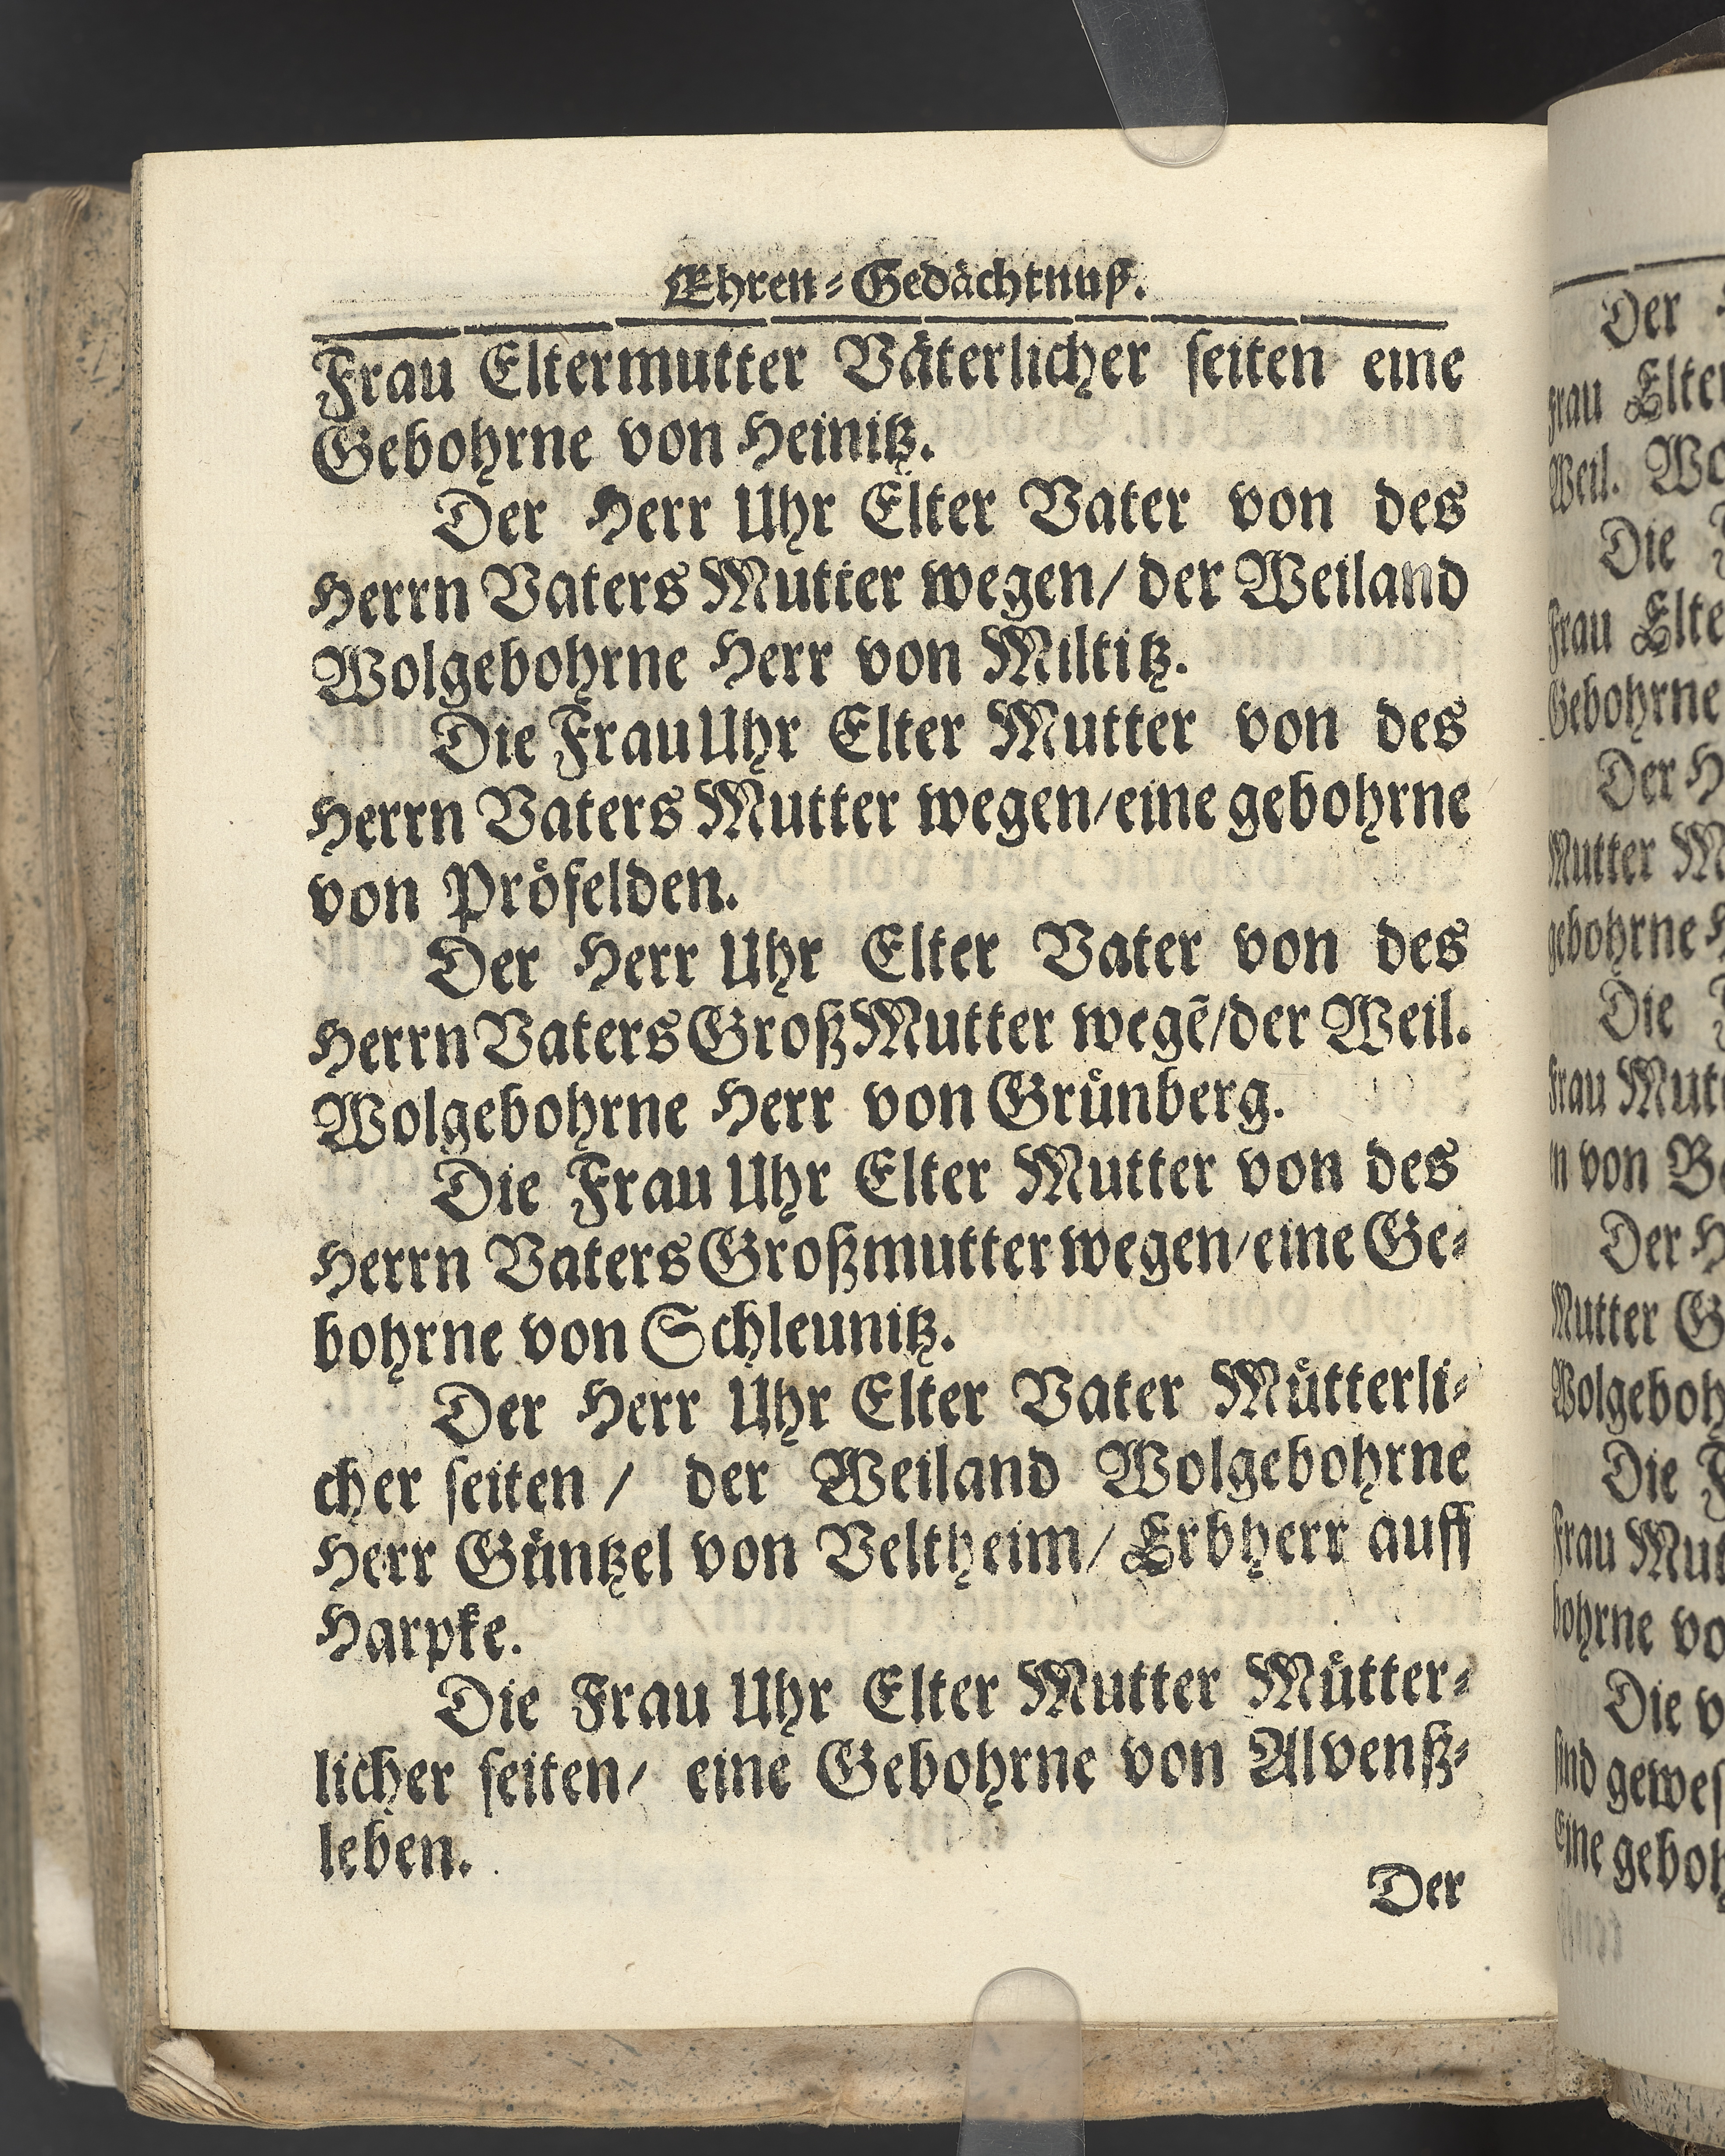 Ehren-Gedächtnuß.
Frau Eltermutter Väterlicher seiten eine
Gebohrne von Heinitz.
Der Herr Uhr Elter Vater von des
Herrn Vaters Mutter wegen/ der Weiland
Wolgebohrne Herr von Miltitz.
Die Frau Uhr Elter Mutter von des
Herrn Vaters Mutter wegen/eine gebohrne
von Pröfelden.
Der Herr Uhr Elter Vater von des
Herrn Vaters GroßMutter wegẽ/der Weil.
Wolgebohrne Herr von Grünberg.
Die Frau Uhr Elter Mutter von des
Herrn Vaters Großmutter wegen/eine Ge-
bohrne von Schleunitz.
Der Herr Uhr Elter Vater Mütterli-
cher seiten / der Weiland Wolgebohrne
Herr Güntzel von Veltheim/ Erbherr auff
Harpke.
Die Frau Uhr Elter Mutter Mütter-
licher seiten/ eine Gebohrne von Alvenß-
leben.
Der
Der
frau
Weil.
Die
Frau
Gebohrne
Der
Mutter
gebohrne
Die
frau
von
Der
Mutter
Die
Frau
bohrne
Die
sind
Eine